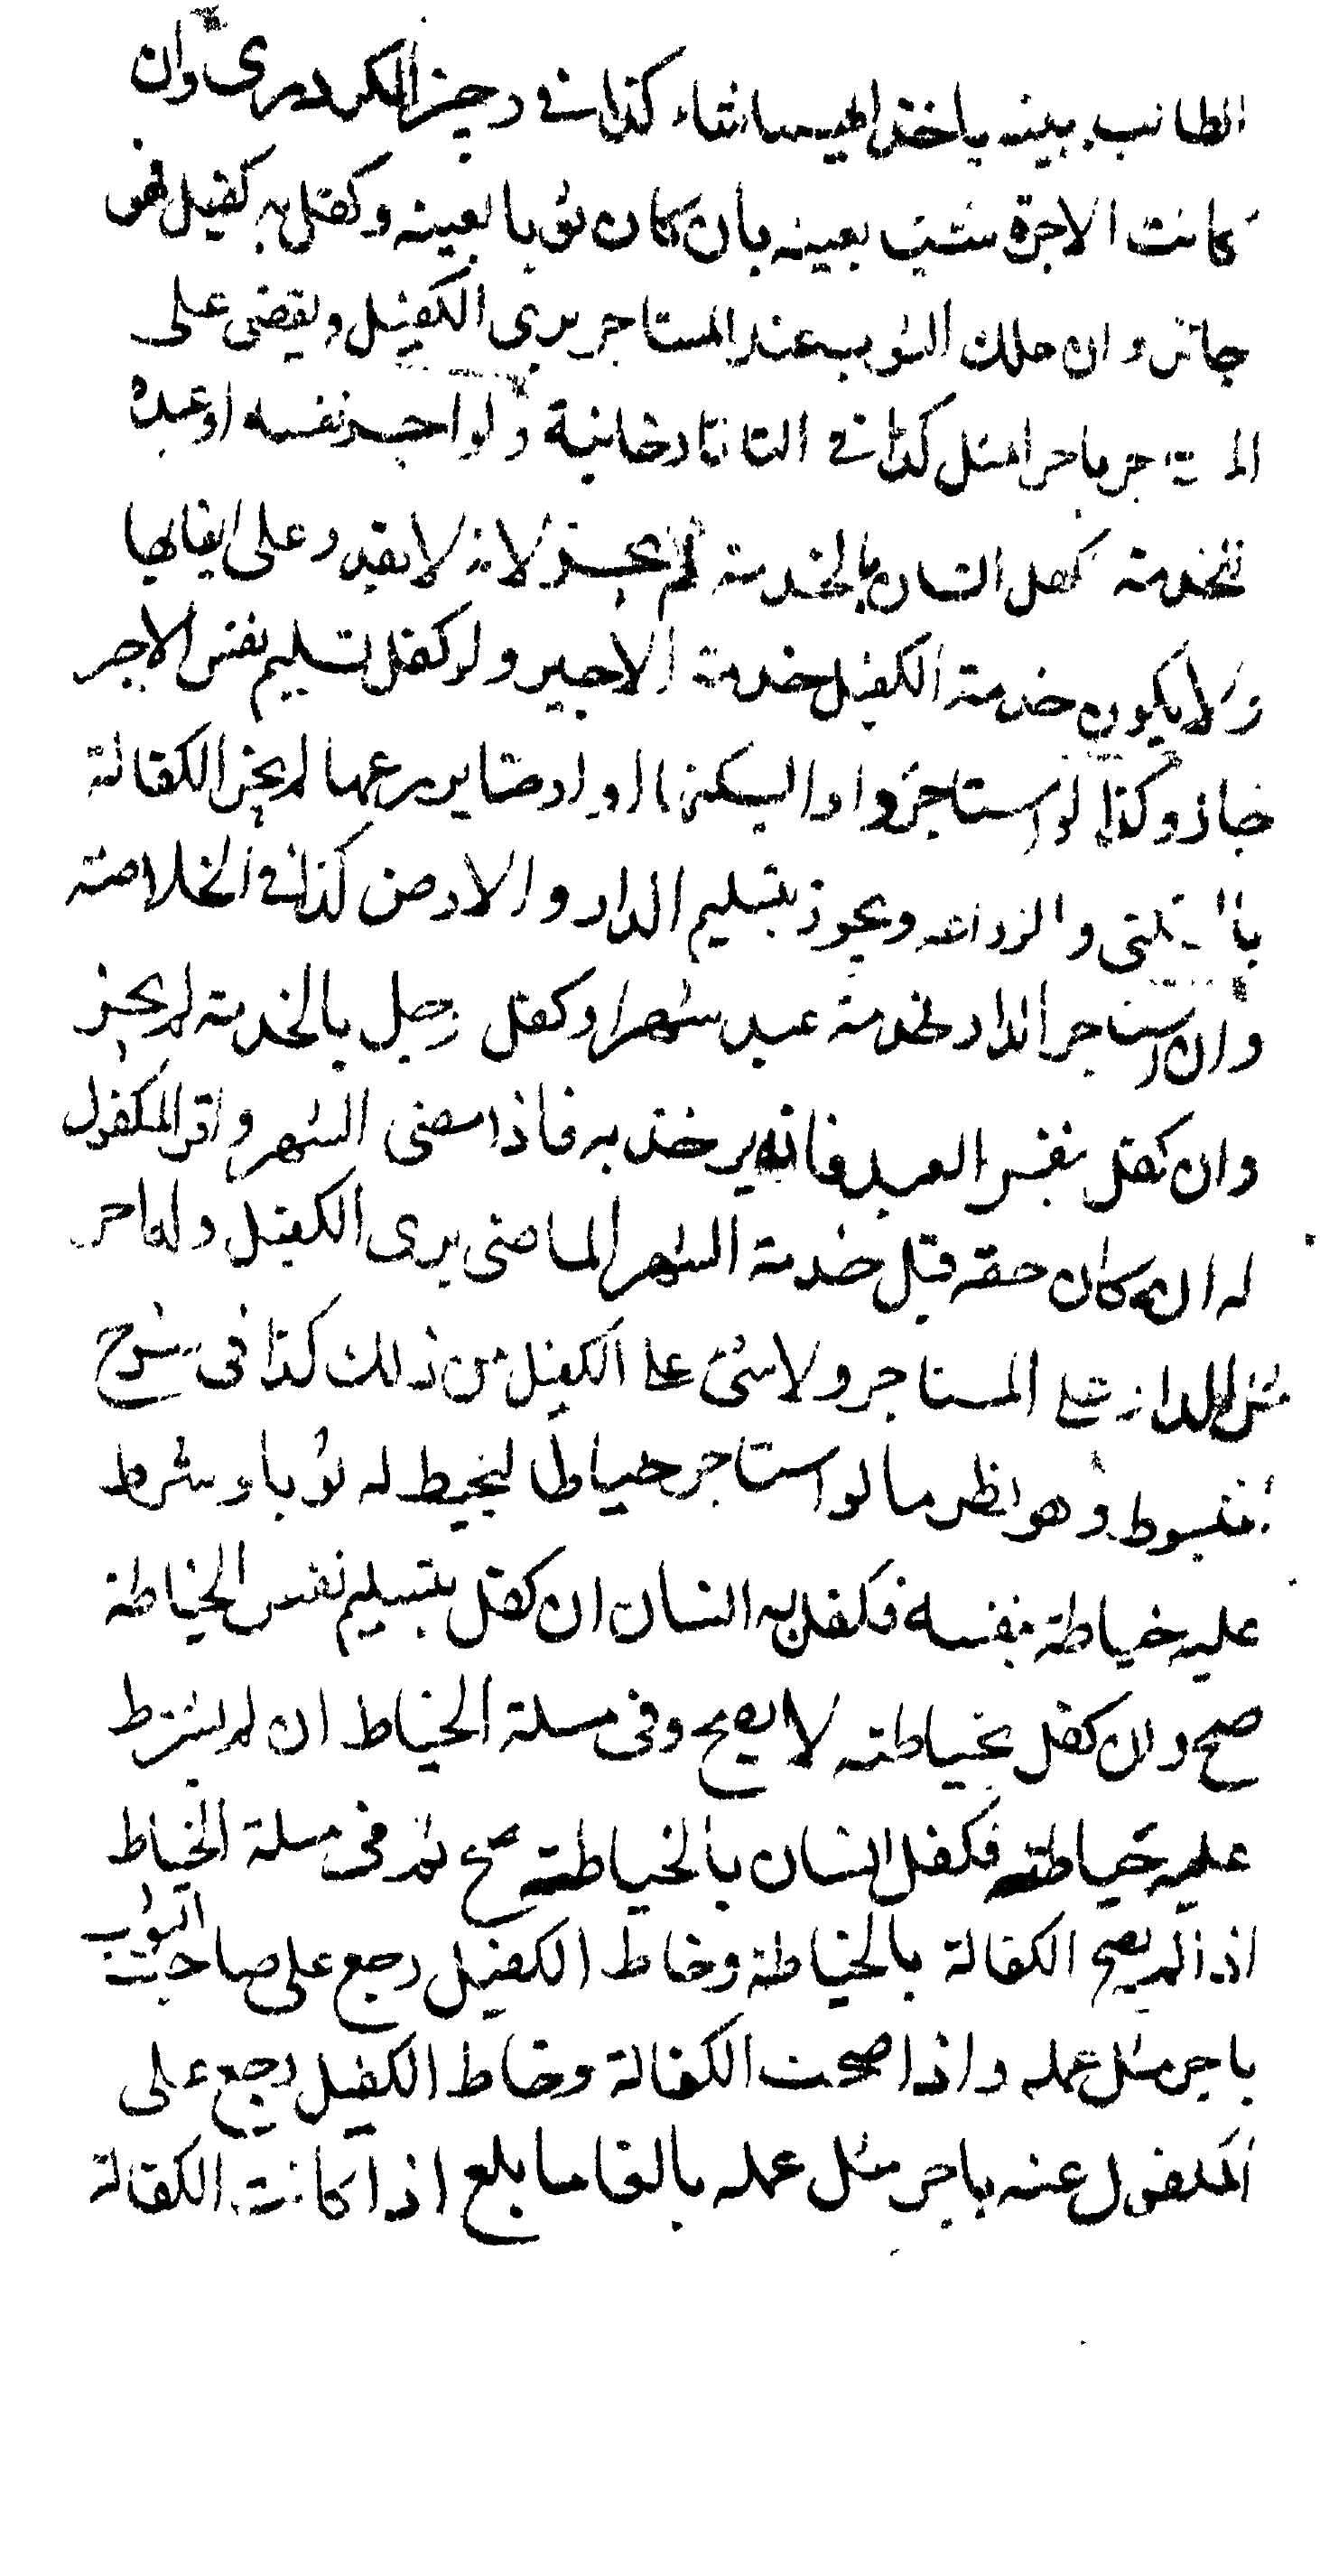 الطالب ببينه ياخذ ايهما شاء كذا في وجيز الكردري وان
كانت الاجرة شئ بعينه بان كان ثوبا بعينه وكفل به كفيل فهو
جائز وان هلك الثوب عند المستاجر برى الكفيل ويقضى على
المستاجر باجر المثل كذا في التاتارخانية ولو اجر نفسه او عبده
للخدمة كفل انسان بالخدمة لم يجز لانه لا يقدر على ايفايها
ولا يكون خدمة الكفيل خدمة الاجير ولو كفل تسليم نفس الاجر
جاز وكذا لو استاجر دارا ليسكنها او ارضا يزرعها لم يجز الكفالة
بالسكنى والزراعه ويجوز بتسليم الدار والارض كذا في الخلاصة
وان استاجر الدار لخدمة عبد شهرا وكفل رجل بالخدمة لم يجز
وان كفل بنفس العبد فانه يوخذ به فاذا مضى الشهر واقر المكفول
له ان كان حقه قبل خدمة الشهر الماضى برى الكفيل وله اجر
مثل الدار على المستاجر ولا شئ على الكفيل من ذلك كذا فى شرح
المبسوط وهو نظير ما لو استاجر خياطا ليخيط له ثوبا وشرط
عليه خياطة بنفسه فكفل به انسان ان كفل بتسليم نفس الخياطة
صح وان كفل بخياطته لا يصح وفى مسلة الخياط ان لم يشترط
عليه خياطته فكفل انسان بالخياطة صح ثم فى مسلة الخياط
اذا لم يصح الكفالة بالخياطة وخاط الكفيل رجع على صاحب الثوب
باجر مثل عمله واذا صحت الكفالة وخاط الكفيل رجع على
المكفول عنه باجر مثل عمله بالغا ما بلغ اذا كانت الكفالة